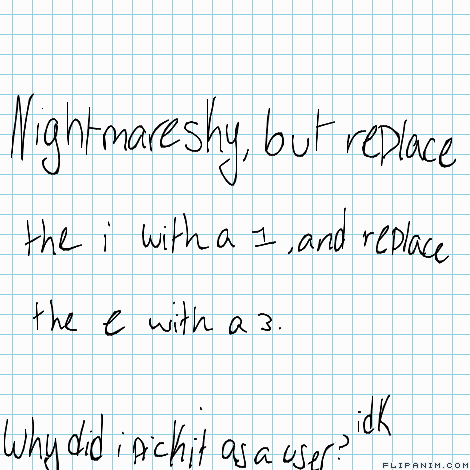 Nightmareshy, but replace
the i with a 1, and replace
the e with a 3.
idk
Why did i pick it as a user?
FLIPANIM.COM